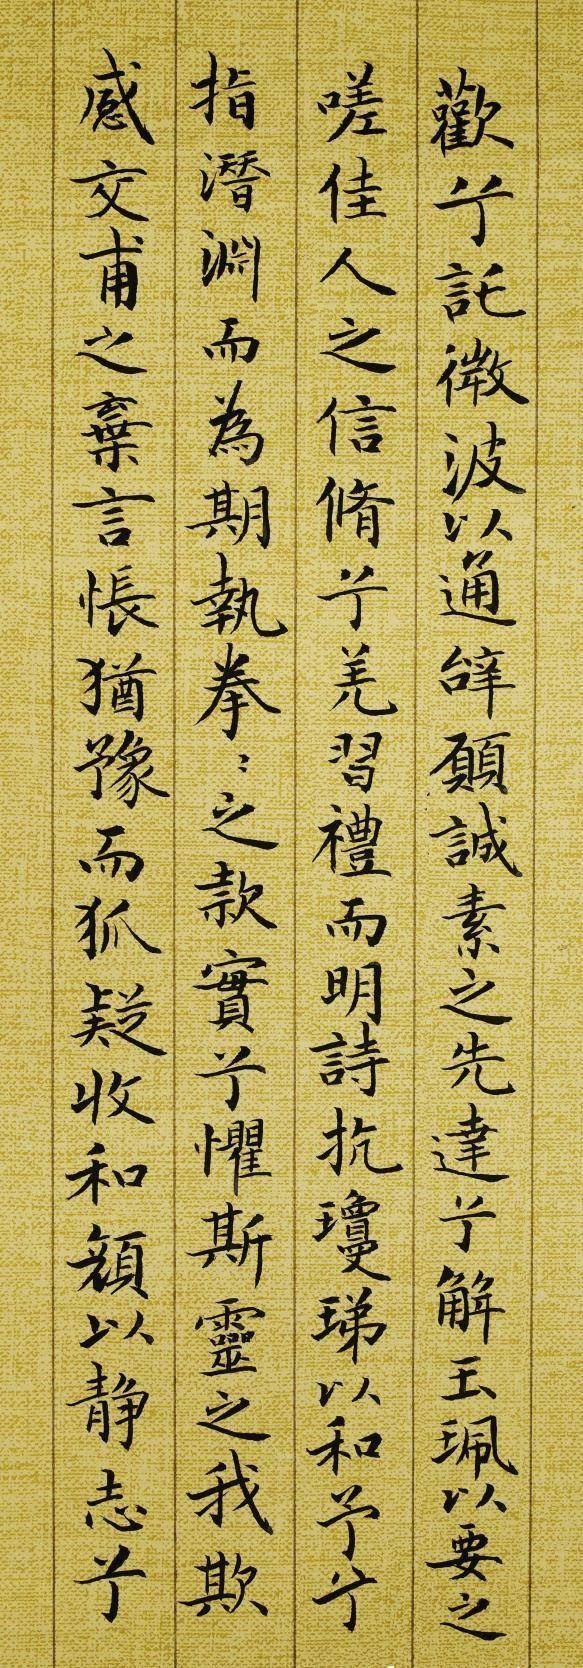 歡兮託微波以通辭願誠素之先達兮解玉珮以要之
嗟佳人之信脩兮羌習禮而明詩抗瓊珶以和予兮
指潛淵而為期執拳〻之款實兮懼斯靈之我欺
感交甫之棄言悵猶豫而狐疑收和顏以静志兮